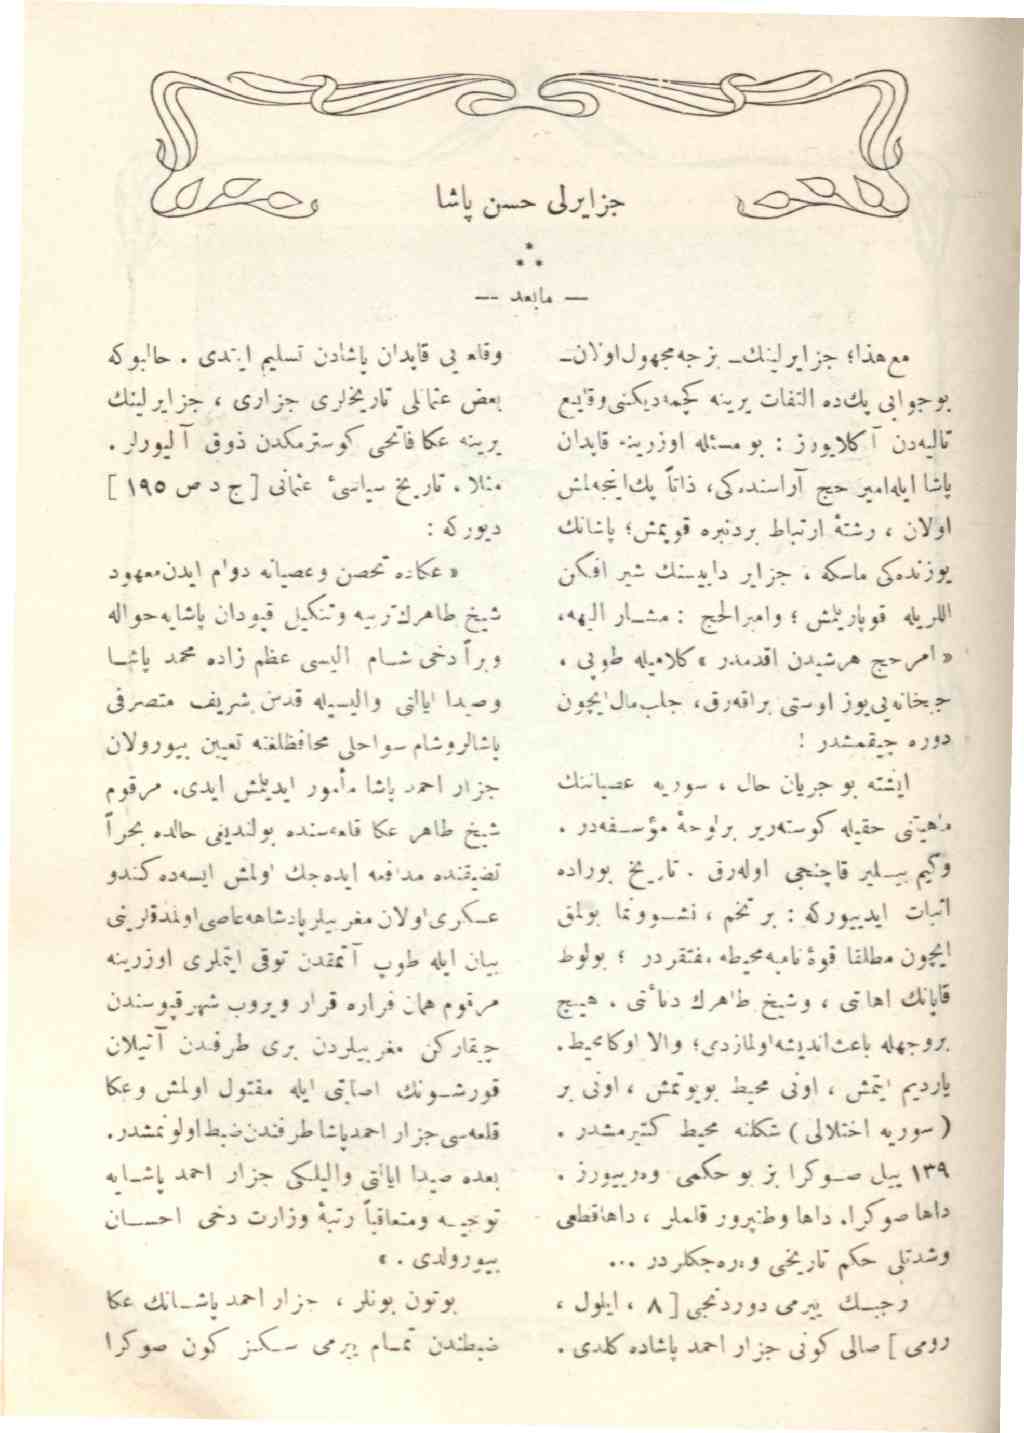 جزایرلی حسن پاشا
— مابعد —
مع‌هذا؛ جزایرلینك ـ بزجه‌مجهول‌اولان ـ
بوجوابی پك‌ده التفات یرینه كچمه‌دیكنی‌وقایع
تالیه‌دن آكلایورز : بو مسئله اوزرینه قاپدان
پاشا ایله‌امیر حج آراسنده‌كی، ذاتاً پك‌اینجه‌لمش
اولان ، رشتۀ ارتباط بردنبره قوپمش؛ پاشانك
یوزنده‌كی ماسكه ، جزایر دایبسنك شیر افكن
اللریله قوپاریلمش ؛ وامیرالحج : مشـار الیهه،
« امرحج هرشیدن اقدمدر » كلامیله طوپی ،
جبخانه‌یی‌یوز اوستی براقه‌رق، جلب‌مال‌ایچون
دوره چیقمشدر !
ایشته بو جریان حال ، سوریه عصیاننك
ماهیتنی حقیله كوسته‌ریر برلوحۀ مؤسـفه‌در .
وكیم بیـلیر قاچنجی اوله‌رق . تاریخ بوراده
اثبات ایدییوركه : بر تخم ، نشـوونما بولمق
ایچون مطلقا قوۀ نامیه‌محیطه مفتقردر ؛ بولوط
قاپانك اهانتی ، وشیخ طاهرك دنائتی . هیـچ
بروجهله باعث‌اندیشه‌اولمازدی؛ والا اوكامحیط.
یاردیم ایتمش ، اونی محیط بویوتمش ، اونی بر
( سوریه اختلالی ) شكلنه محیط كتیرمشدر .
١٣٩ ییل صـوكرا بز بو حكمی ویرییورز .
داها صوكرا. داها وطنپرور قلملر ، داهاقطعی
وشدتلی حكم تاریخی ویره‌جكلردر ...
رجبـك ییرمی دوردنجی [ ٨ ، ایلول ،
رومی ] صالی كونی جزار احمد پاشاده كلدی .
وقلعه یی قاپدان پاشادن تسلیم ایتدی . حالبوكه
بعض عثمانلی تاریخلری جزاری ، جزایرلینك
یرینه عكا فاتحی كوسترمكدن ذوق آلیورلر .
مثلا. تاریخ سیاسیٔ عثمانی [ ج د ص ١٩٥ ]
دیوركه :
« عكاده تحصن وعصیانه دوام ایدن‌معهود
شیخ طاهرك‌تربیه وتنكیلی قپودان پاشایه‌حواله
وبراً دخی شـام والیسی عظم زاده محمد پاشـا
وصیدا ایالتی والیسیله قدس شریف متصرفی
پاشالروشام سواحلی محافظلغنه تعیین بیورولان
جزار احمد پاشا مأمور ایدیلمش ایدی. مرقوم
شیخ طاهر عكا قلعه‌سنده بولندیغی حالده بحراً
تضییقنده مدافعه ایده‌جك اولمش ایسه‌ده كندو
عسكری‌اولان مغربیلرپادشاهه‌عاصی‌اولمدقلرینی
بیان ایله طوپ آتمقدن توقی ایتملری اوزرینه
مرقوم همان فراره قرار ویروب شهرقپوسندن
چیقاركن مغربیلردن بری طرفندن آتیلان
قورشـونك اصابتی ایله مقتول اولمش وعكا
قلعه‌سی جزار احمدپاشاطرفندن‌ضبط‌اولونمشدر.
بعده صیدا ایالتی والیلكی جزار احمد پاشـایه
توجیـه ومتعاقباً رتبۀ وزارت دخی احسـان
بیورولدی . »
بوتون بونلر ، جزار احمد پاشـانك عكا
ضبطندن تمـام ییرمی سـكز كون صوكرا